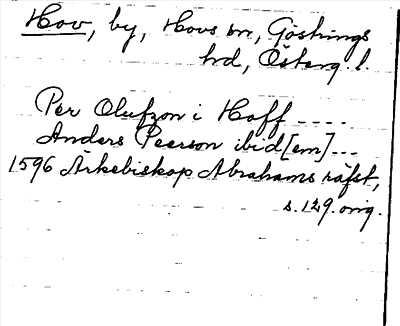 Hov, by, Hovs sn, Göstrings
hd, Österg. l.
Per Olufzon i Hoff ----
Anders Pearson ibid[em]---
1596 Ärkebiskop Abrahams räfst,
s. 129. orig.